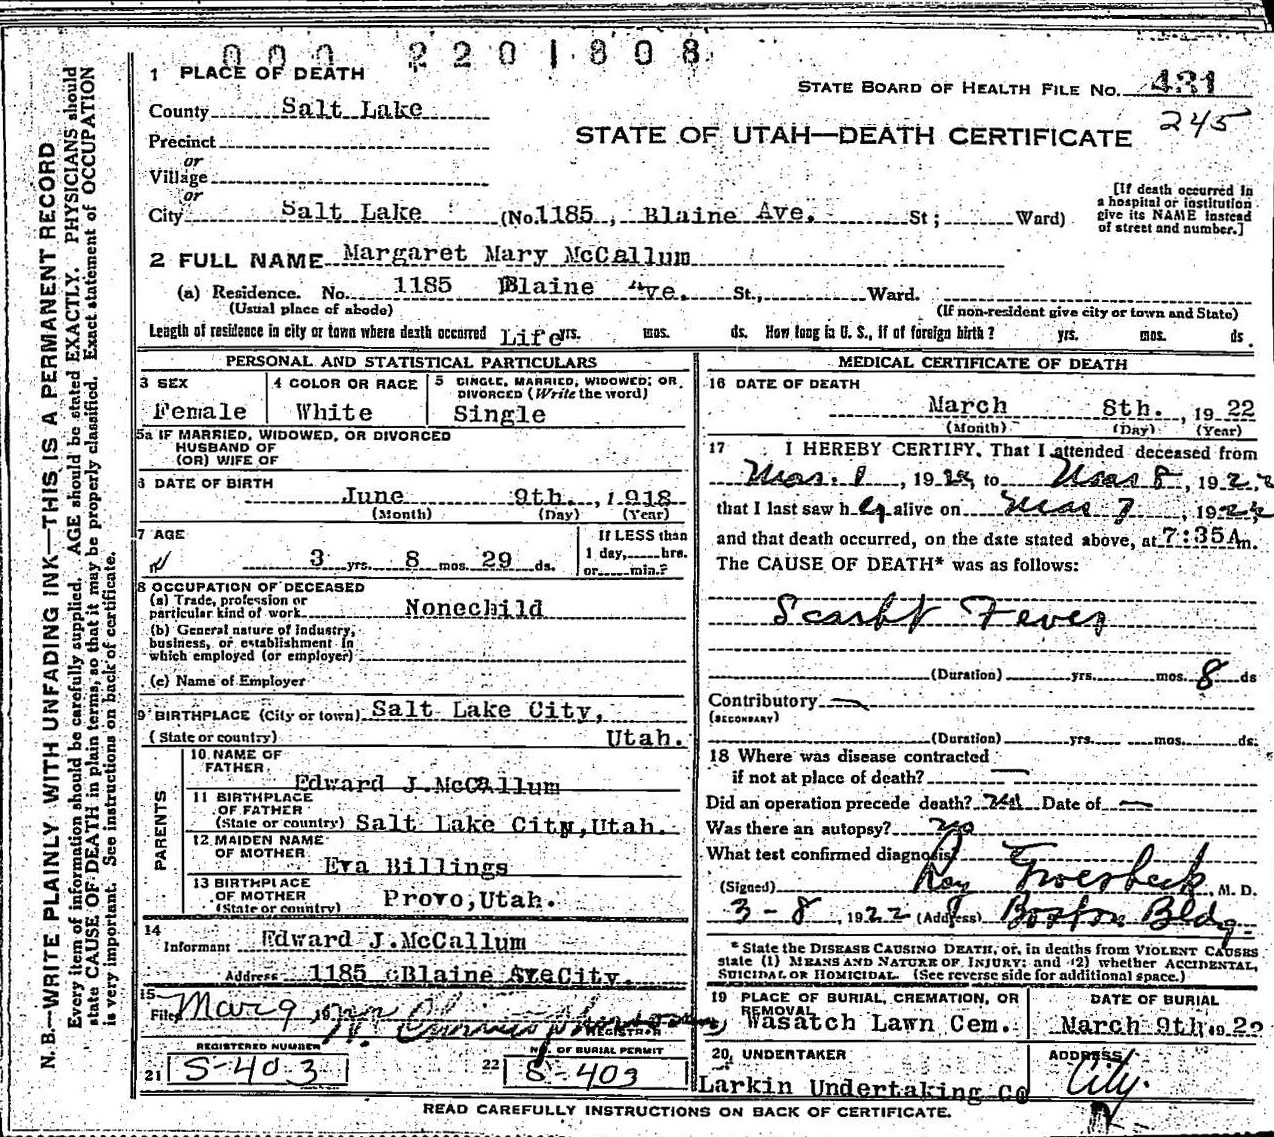 000 2201808
1 PLACE OF DEATH
STATE BOARD OF HEALTH FILE NO. 431
County Salt Lake
245
STATE OF UTAH—DEATH CERTIFICATE
Precinct
or
Village
or
City Salt Lake (No. 1185, Blaine Ave. St; Ward)
[If death occurred in a hospital or institution give its NAME instead of street and number.]
2 FULL NAME Margaret Mary McCallum
(a) Residence. No. 1185 Blaine Ave. St., Ward.
(Usual place of abode) (If non-resident give city or town and State)
Length of residence in city or town where death occurred Life yrs. mos. ds. How long in U. S., if of foreign birth? yrs. mos. ds.
PERSONAL AND STATISTICAL PARTICULARS
3 SEX Female
4 COLOR OR RACE White
5 SINGLE, MARRIED, WIDOWED, OR DIVORCED (Write the word) Single
5a IF MARRIED, WIDOWED, OR DIVORCED
HUSBAND OF
(OR) WIFE OF
6 DATE OF BIRTH
June 9th, 1918
(Month) (Day) (Year)
7 AGE
3 yrs. 8 mos. 29 ds.
If LESS than
1 day, hrs.
or min.?
8 OCCUPATION OF DECEASED
(a) Trade, profession or
particular kind of work Nonechild
(b) General nature of industry,
business, or establishment in
which employed (or employer)
(c) Name of Employer
9 BIRTHPLACE (City or town) Salt Lake City,
(State or country) Utah.
PARENTS
10 NAME OF
FATHER Edward J.McCallum
11 BIRTHPLACE
OF FATHER
(State or country) Salt Lake City,Utah.
12 MAIDEN NAME
OF MOTHER Eva Billings
13 BIRTHPLACE
OF MOTHER
(State or country) Provo,Utah.
14
Informant Edward J.McCallum
Address 1185 Blaine Ave City.
15
Filed Mar 9
REGISTRAR
REGISTERED NUMBER
21 S-403
NO. OF BURIAL PERMIT
22 S-403
MEDICAL CERTIFICATE OF DEATH
16 DATE OF DEATH
March 8th. , 1922
(Month) (Day) (Year)
17 I HEREBY CERTIFY, That I attended deceased from
Mar. 1, 1922, to Mar 8, 1922
that I last saw her alive on Mar 7, 1922
and that death occurred, on the date stated above, at 7:35A m.
The CAUSE OF DEATH* was as follows:
Scarlet Fever
(Duration) yrs. mos. 8 ds
Contributory —
(SECONDARY)
(Duration) yrs. mos. ds.
18 Where was disease contracted
if not at place of death? —
Did an operation precede death? no Date of —
Was there an autopsy? no
What test confirmed diagnosis?
(Signed) Roy Groesbeck, M. D.
3-8, 1922 (Address) Boston Bldg.
* State the DISEASE CAUSING DEATH, or, in deaths from VIOLENT CAUSES
state (1) MEANS AND NATURE OF INJURY; and (2) whether ACCIDENTAL,
SUICIDAL OR HOMICIDAL. (See reverse side for additional space.)
19 PLACE OF BURIAL, CREMATION, OR
REMOVAL
Wasatch Lawn Cem.
DATE OF BURIAL
March 9th, 1922
20, UNDERTAKER
Larkin Undertaking Co
ADDRESS
City.
READ CAREFULLY INSTRUCTIONS ON BACK OF CERTIFICATE.
N. B.—WRITE PLAINLY WITH UNFADING INK—THIS IS A PERMANENT RECORD
Every item of information should be carefully supplied. AGE should be stated EXACTLY. PHYSICIANS should
state CAUSE OF DEATH in plain terms, so that it may be properly classified. Exact statement of OCCUPATION
is very important. See instructions on back of certificate.